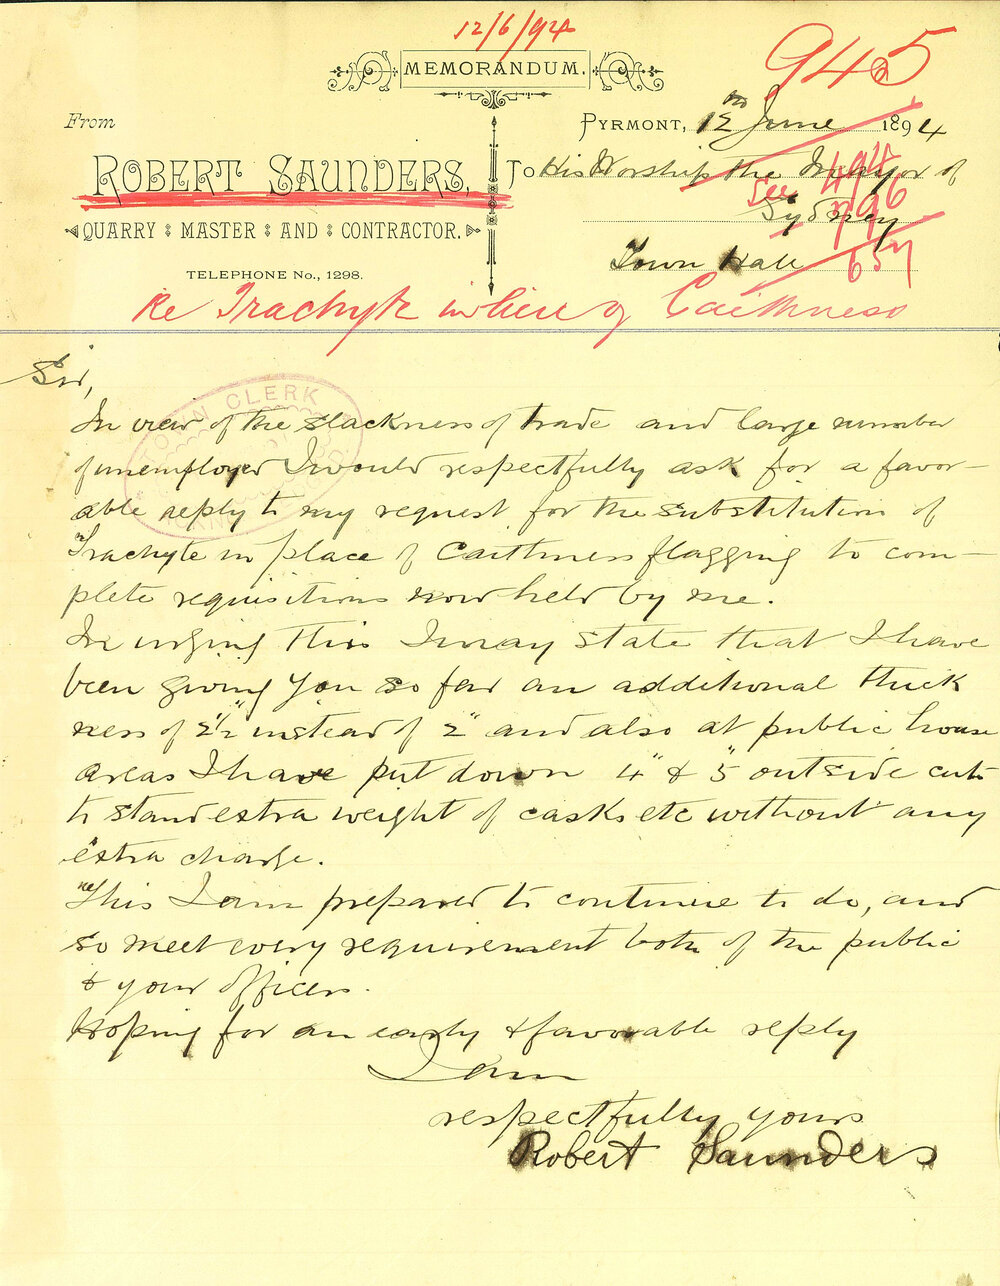 12/6/94
945
MEMORANDUM.
From
PYRMONT, 12th June 1894
ROBERT SAUNDERS,
To His Worship the Mayor of
See 494
796
Sydney
QUARRY MASTER AND CONTRACTOR.
Town Hall
657
TELEPHONE No., 1298.
Re Trachyte in lieu of Caithness
Sir,
TOWN CLERK
In view of the slackness of trade and large number
of unemployed I would respectfully ask for a favor-
able reply to my request for the substitution of
Trachyte in place of Caithness flagging to com-
plete requisitions now held by me.
In urging this I may state that I have
been giving you so far an additional thick
ness of 2½" instead of 2" and also at public house
areas I have put down 4" & 5" outside
to stand extra weight of casks etc without any
extra charge.
This I am prepared to continue to do, and
so meet every requirement both of the public
& your officers.
Hoping for an early & favorable reply
I am
respectfully yours
Robert Saunders